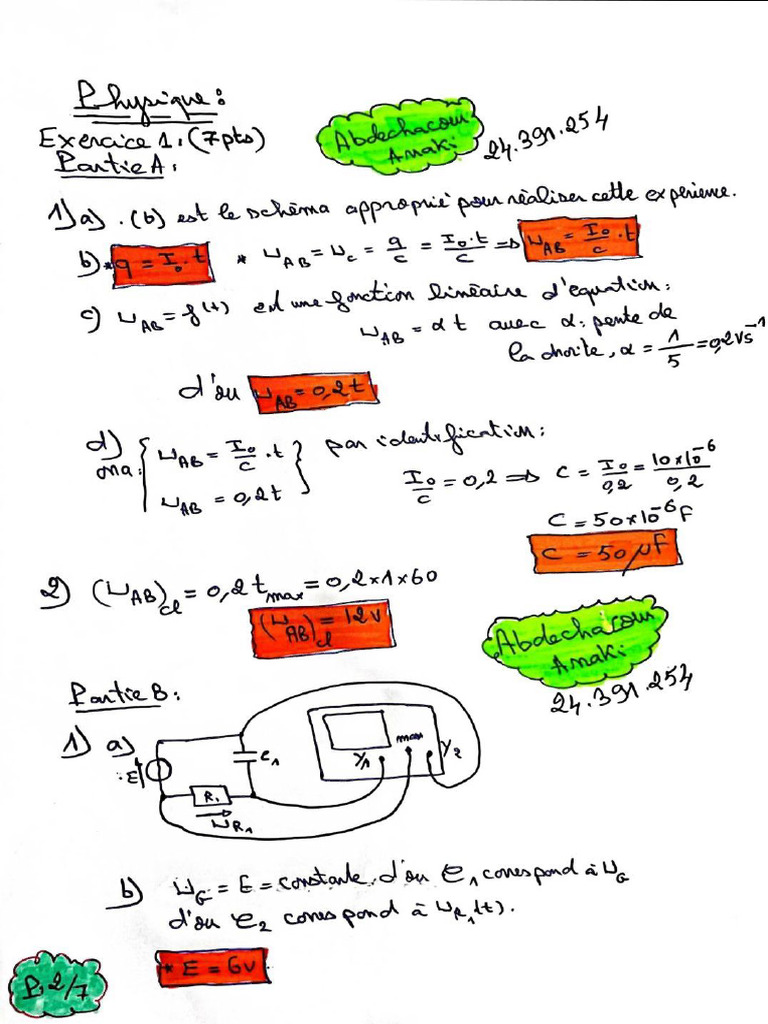 Physique:
Exercice 1: (7pts)
Abdechacour
Amaki
24.391.254
Partie A:
1) a) . (b) est le schéma approprié pour réaliser cette expérience.
b) * q = I₀.t * u_AB = u_c = q/c = I₀.t/c ⇒ u_AB = I₀/c . t
c) u_AB = f(t) est une fonction linéaire d'équation:
u_AB = αt avec α: pente de
la droite, α = 1/5 = 0,2 Vs⁻¹
d'où u_AB = 0,2t
d) ona: { u_AB = I₀/c . t
u_AB = 0,2t } par identification:
I₀/c = 0,2 ⇒ C = I₀/0,2 = 10×10⁻⁶/0,2
C = 50×10⁻⁶F
C = 50μF
2) (u_AB)_cl = 0,2 t_max = 0,2×1×60
(u_AB)_cl = 12V
Abdechacour
Amaki
24.391.254
Partie B:
1) a)
E
C₁
R₁
u_R₁
Y₁
masse
Y₂
b) u_G = E = constante, d'où C₁ correspond à u_G
d'où C₂ correspond à u_R₁(t).
* E = 6V
P: 2/7